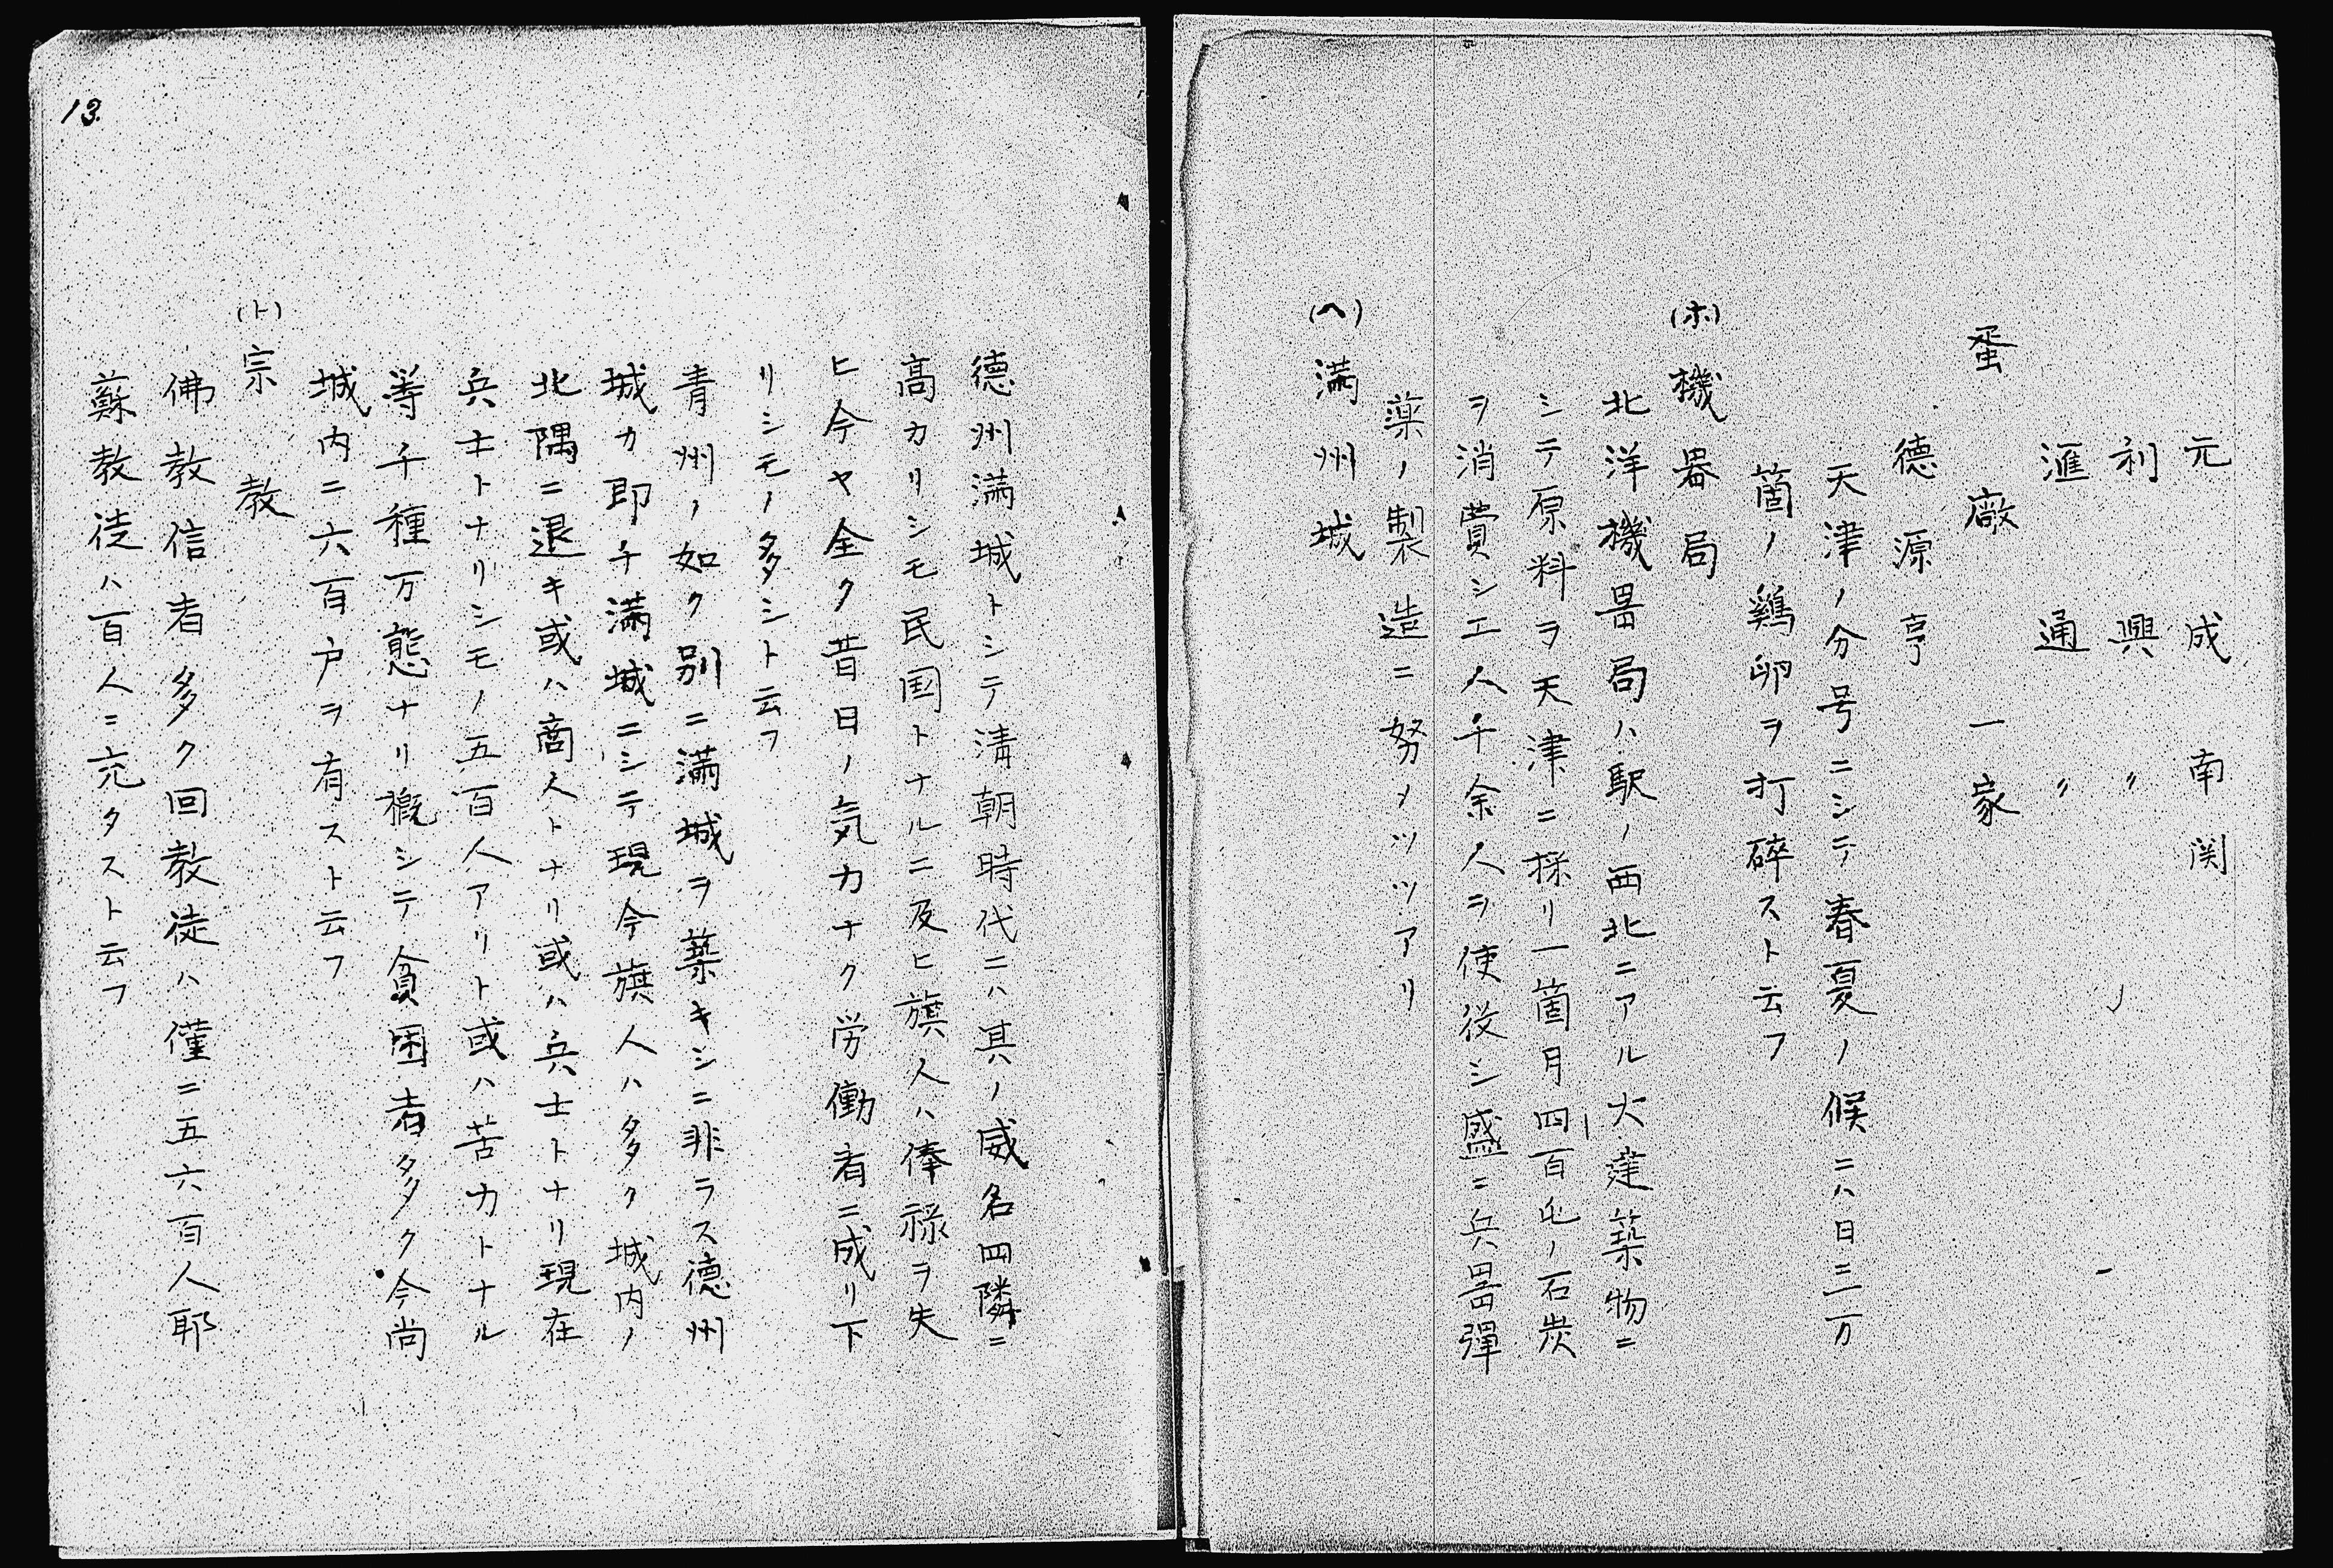 元成南関
利興〃
滙通〃
蛋廠一家
德源亨
天津ノ分号ニシテ春夏ノ候ニハ日三万
箇ノ鶏卵ヲ打碎スト云フ
(ホ)機器局
北洋機器局ハ駅ノ西北ニアル大建築物ニ
シテ原料ヲ天津ニ採リ一箇月四百屯ノ石炭
ヲ消費シ工人千余人ヲ使役シ盛ニ兵器彈
薬ノ製造ニ努メツツアリ
(ヘ)満州城
德州満城トシテ淸朝時代ニハ其ノ威名四隣ニ
高カリシモ民国トナルニ及ヒ旗人ハ俸祿ヲ失
ヒ今ヤ全ク昔日ノ気力ナク労働者ニ成リ下
リシモノ多シト云フ
青州ノ如ク別ニ満城ヲ築キシニ非ラス德州
城カ即チ満城ニシテ現今旗人ハ多ク城内ノ
北隅ニ退キ或ハ商人トナリ或ハ兵士トナリ現在
兵士トナリシモノ五百人アリト或ハ苦力トナル
等千種万態ナリ概シテ貧困者多ク今尚
城内ニ六百戸ヲ有スト云フ
(ト)宗教
佛教信者多ク回教徒ハ僅ニ五六百人耶
蘇教徒ハ百人ニ充タスト云フ
13.